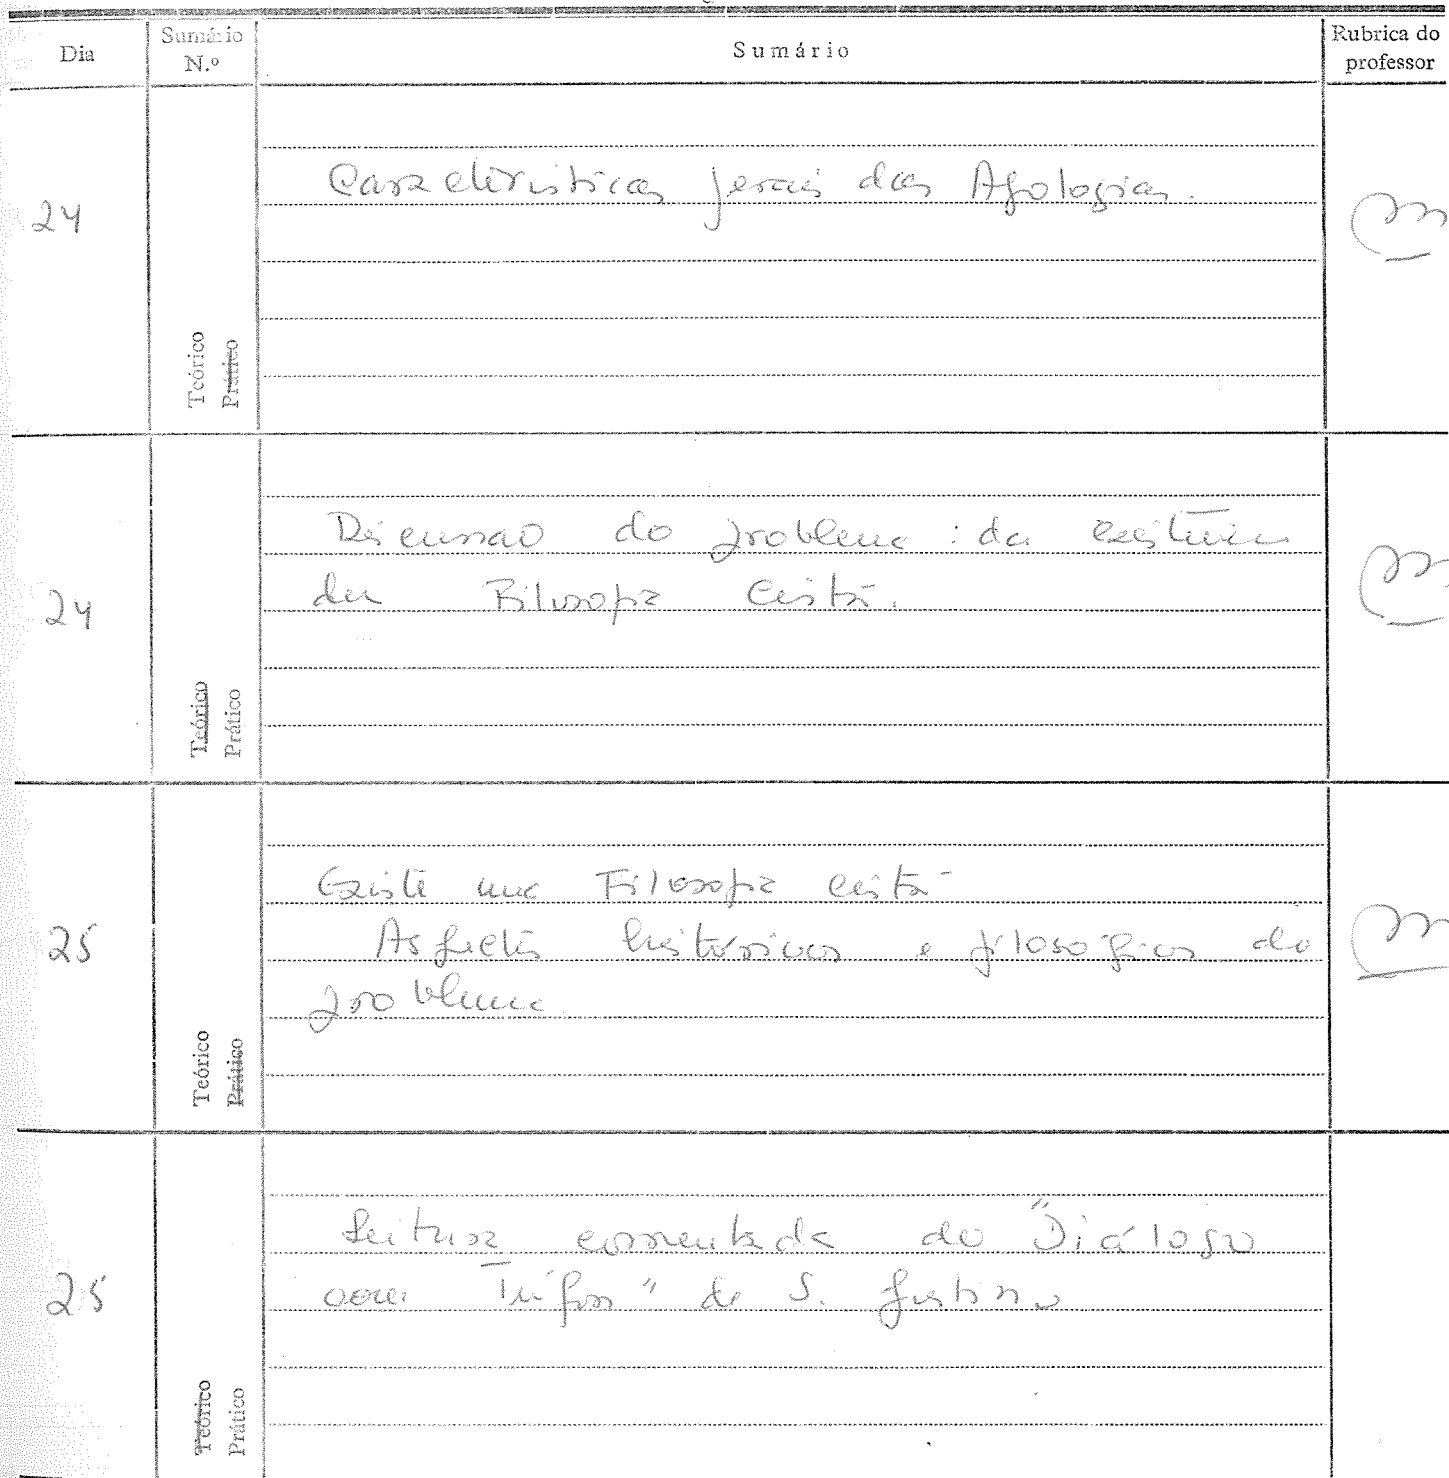 Dia
Sumário N.º
Sumário
Rubrica do professor
24
Características gerais das Apologias.
Teórico
Prático
24
Discussão do problema : da existência
da Filosofia Cristã.
Teórico
Prático
25
Existe uma Filosofia cristã
Aspectos históricos e filosóficos do
problema
Teórico
Prático
25
Leitura comentada do "Diálogo
com Trifon" de S. Justino
Teórico
Prático